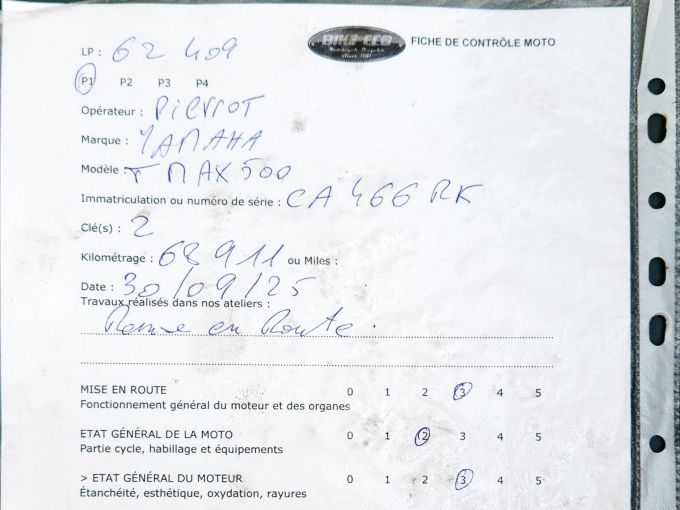 LP : 62 409
FICHE DE CONTRÔLE MOTO
P1 P2 P3 P4
Opérateur : PIERROT
Marque : YAMAHA
Modèle : T MAX 500
Immatriculation ou numéro de série : CA 466 RK
Clé(s) : 2
Kilométrage : 68911 ou Miles :
Date : 30/09/25
Travaux réalisés dans nos ateliers :
Remise en Route
MISE EN ROUTE 0 1 2 3 4 5
Fonctionnement général du moteur et des organes
ETAT GÉNÉRAL DE LA MOTO 0 1 2 3 4 5
Partie cycle, habillage et équipements
> ETAT GÉNÉRAL DU MOTEUR 0 1 2 3 4 5
Étanchéité, esthétique, oxydation, rayures